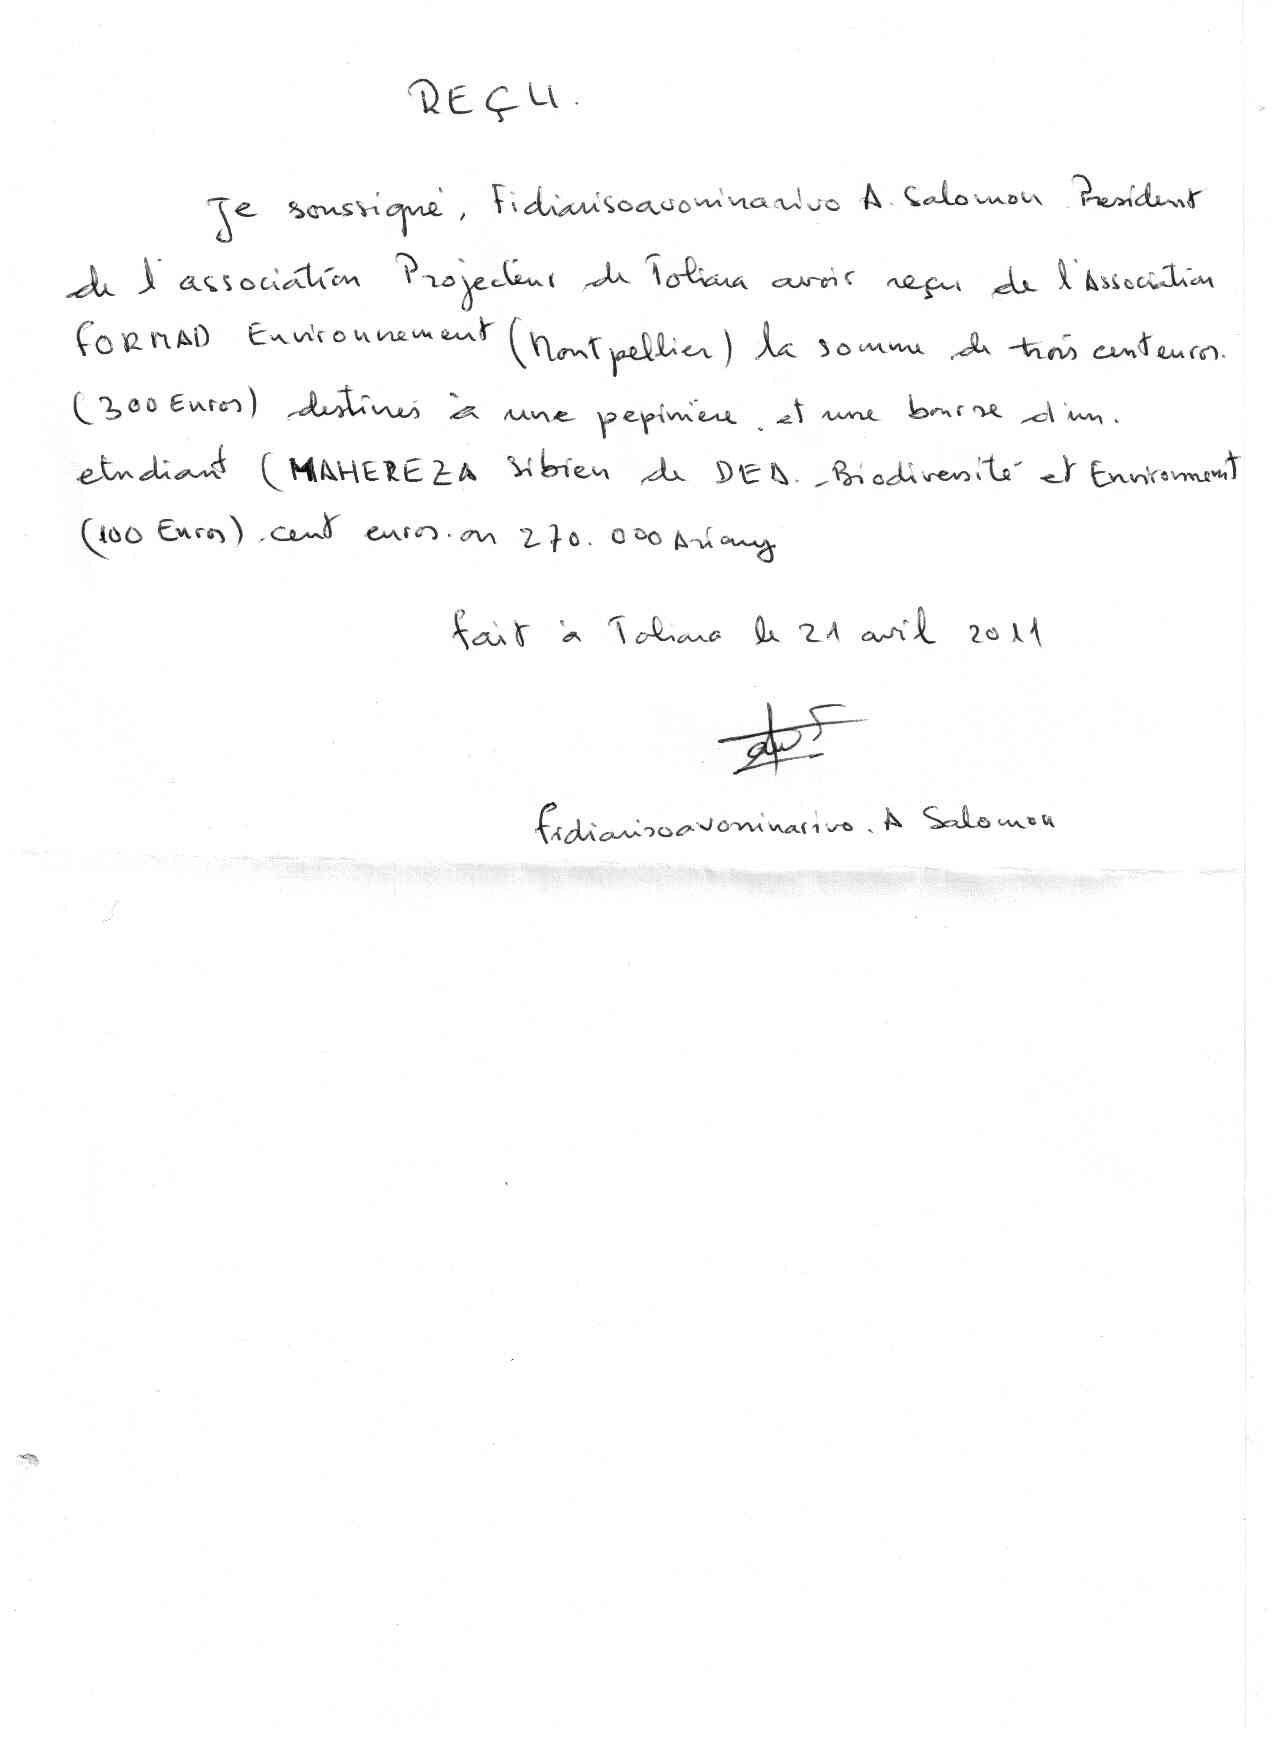 REÇU.
Je soussigné, Fidiarisoavoninarivo A. Salomon President
de l'association Projecteur de Toliara avoir reçu de l'Association
FORMAD Environnement (Montpellier) la somme de trois cent euros.
(300 Euros) destines à une pepiniere et une bourse d'un.
etudiant (MAHEREZA Sibien de DEA. Biodiversité et Environnement
(100 Euros). cent euros. ou 270.000 Ariary
fait à Toliara le 21 avril 2011
fidiarisoavoninarivo. A Salomon